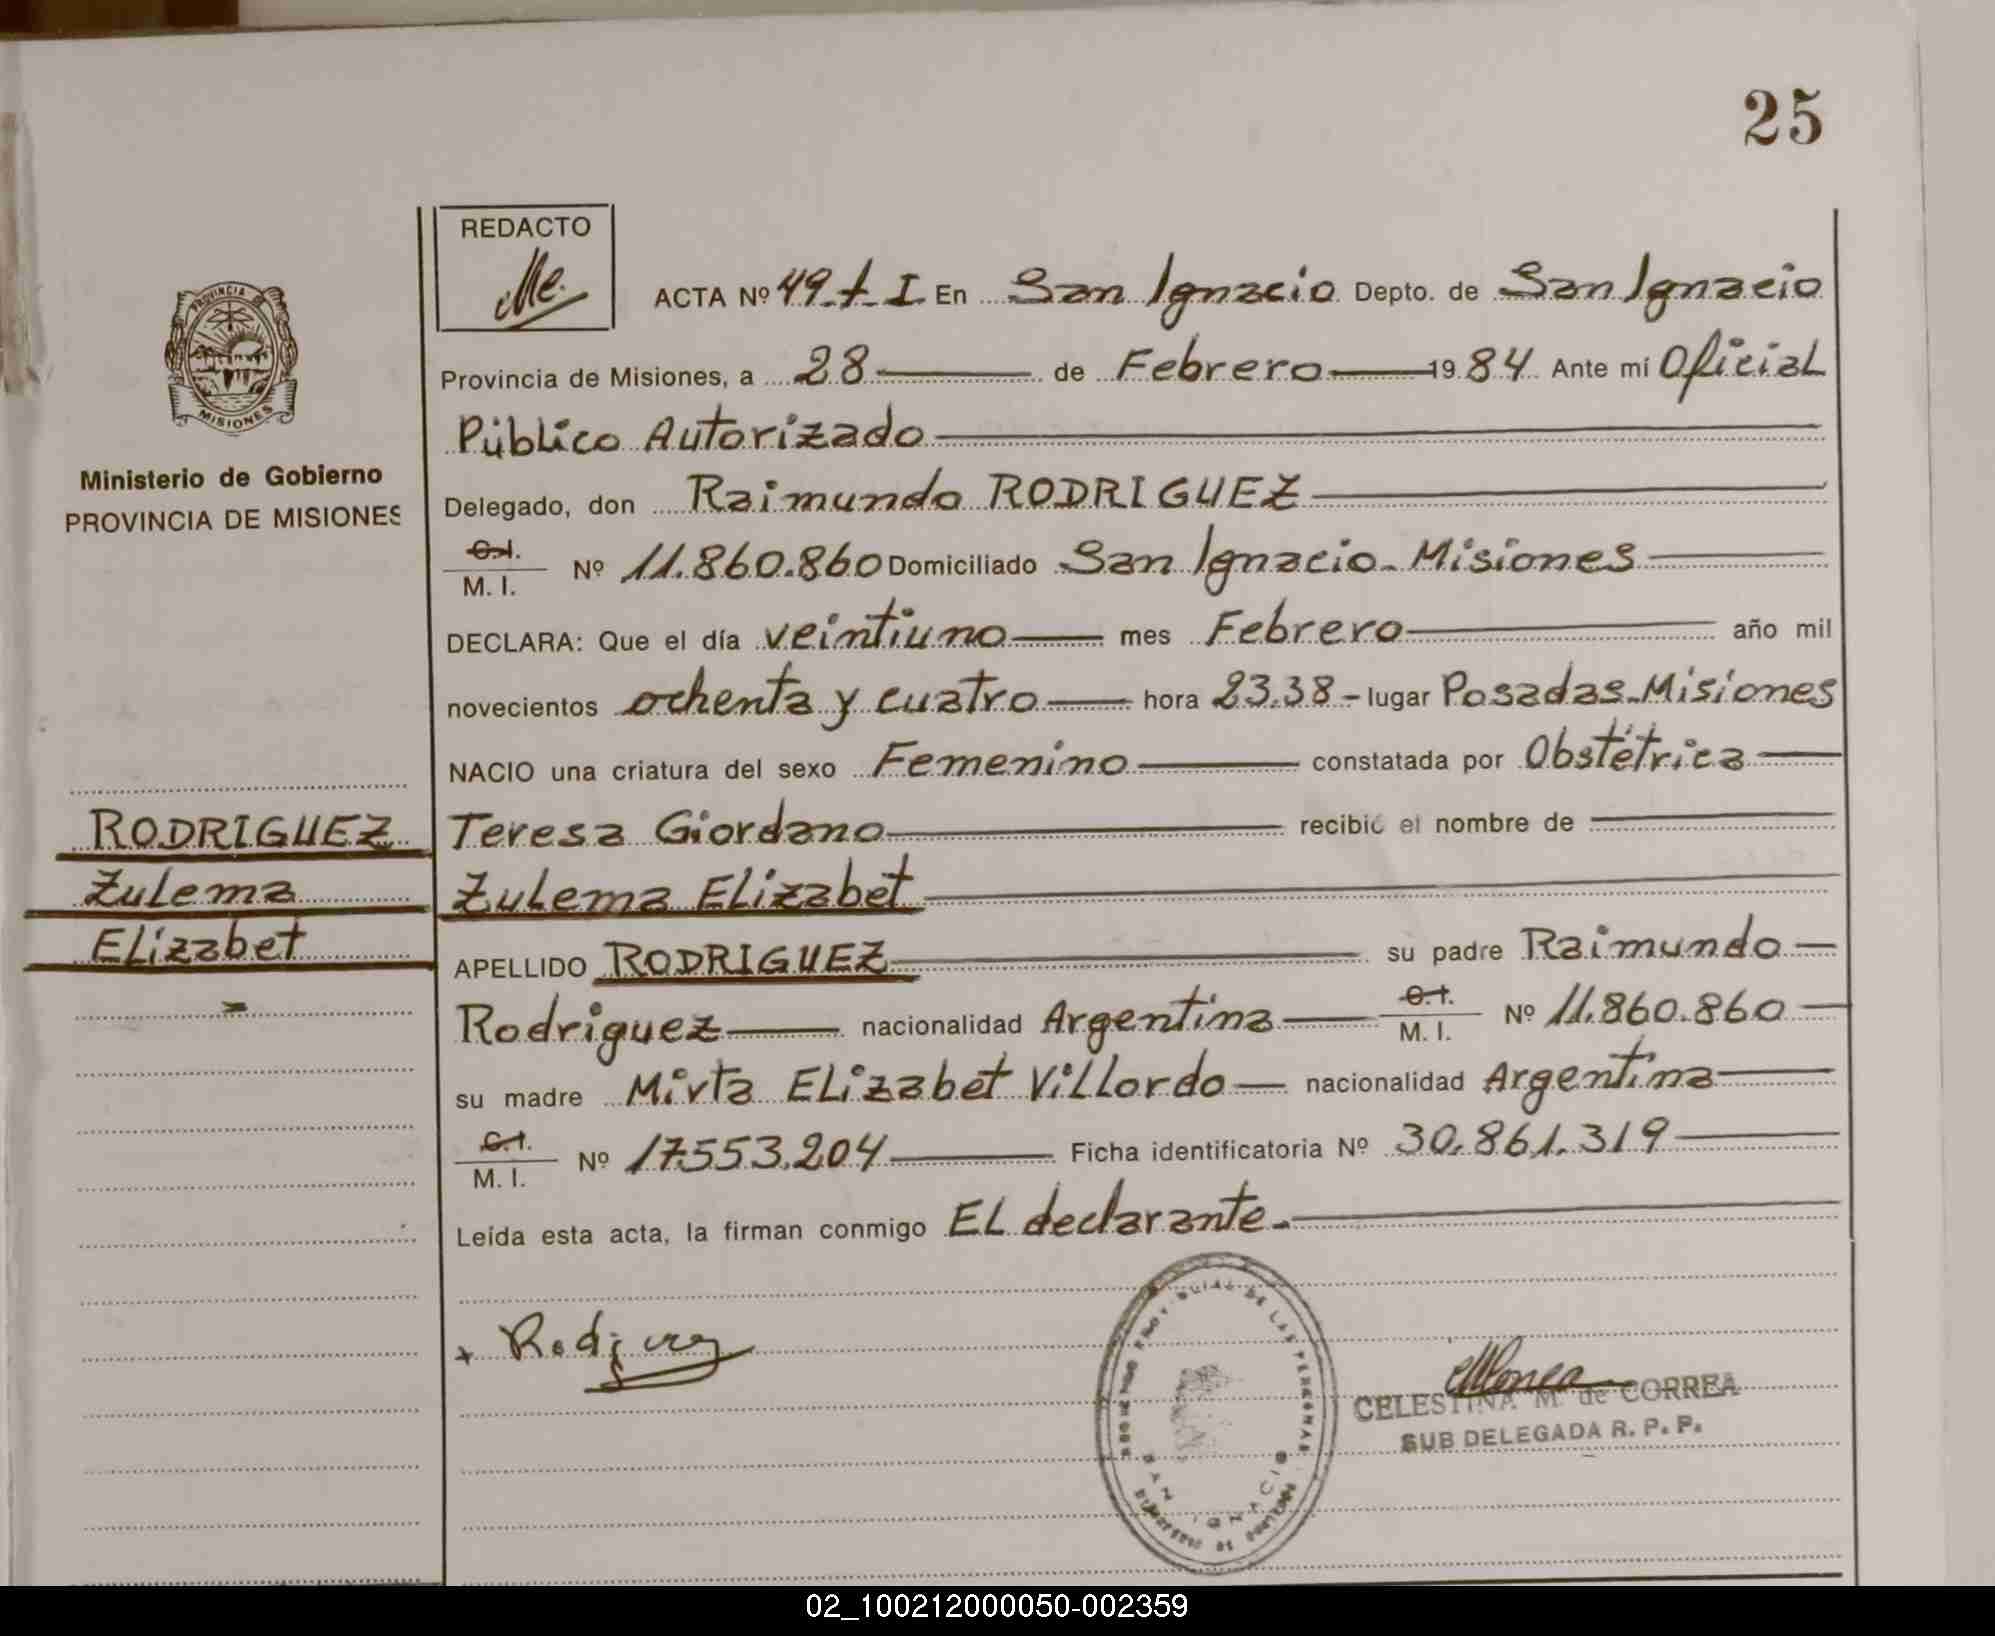 25
REDACTO
Me.
ACTA Nº 49_t_I En San Ignacio Depto. de San Ignacio
Provincia de Misiones, a 28 de Febrero 1984 Ante mí Oficial
Público Autorizado
Delegado, don Raimundo RODRIGUEZ
C.I.
M. I. Nº 11.860.860 Domiciliado San Ignacio_ Misiones
DECLARA: Que el día veintiuno mes Febrero año mil
novecientos ochenta y cuatro hora 23.38 - lugar Posadas_Misiones
NACIO una criatura del sexo Femenino constatada por Obstétrica
Teresa Giordano recibió el nombre de
Zulema Elizabet
APELLIDO RODRIGUEZ su padre Raimundo
Rodriguez nacionalidad Argentina C.I. M. I. Nº 11.860.860
su madre Mirta Elizabet Villordo nacionalidad Argentina
C.I.
M. I. Nº 17.553.204 Ficha identificatoria Nº 30.861.319
Leída esta acta, la firman conmigo El declarante.
PROVINCIA
MISIONES
Ministerio de Gobierno
PROVINCIA DE MISIONES
RODRIGUEZ
Zulema
Elizabet
DE LAS PERSONAS
SAN IGNACIO
CELESTINA M. de CORREA
SUB DELEGADA R. P. P.
02_100212000050-002359